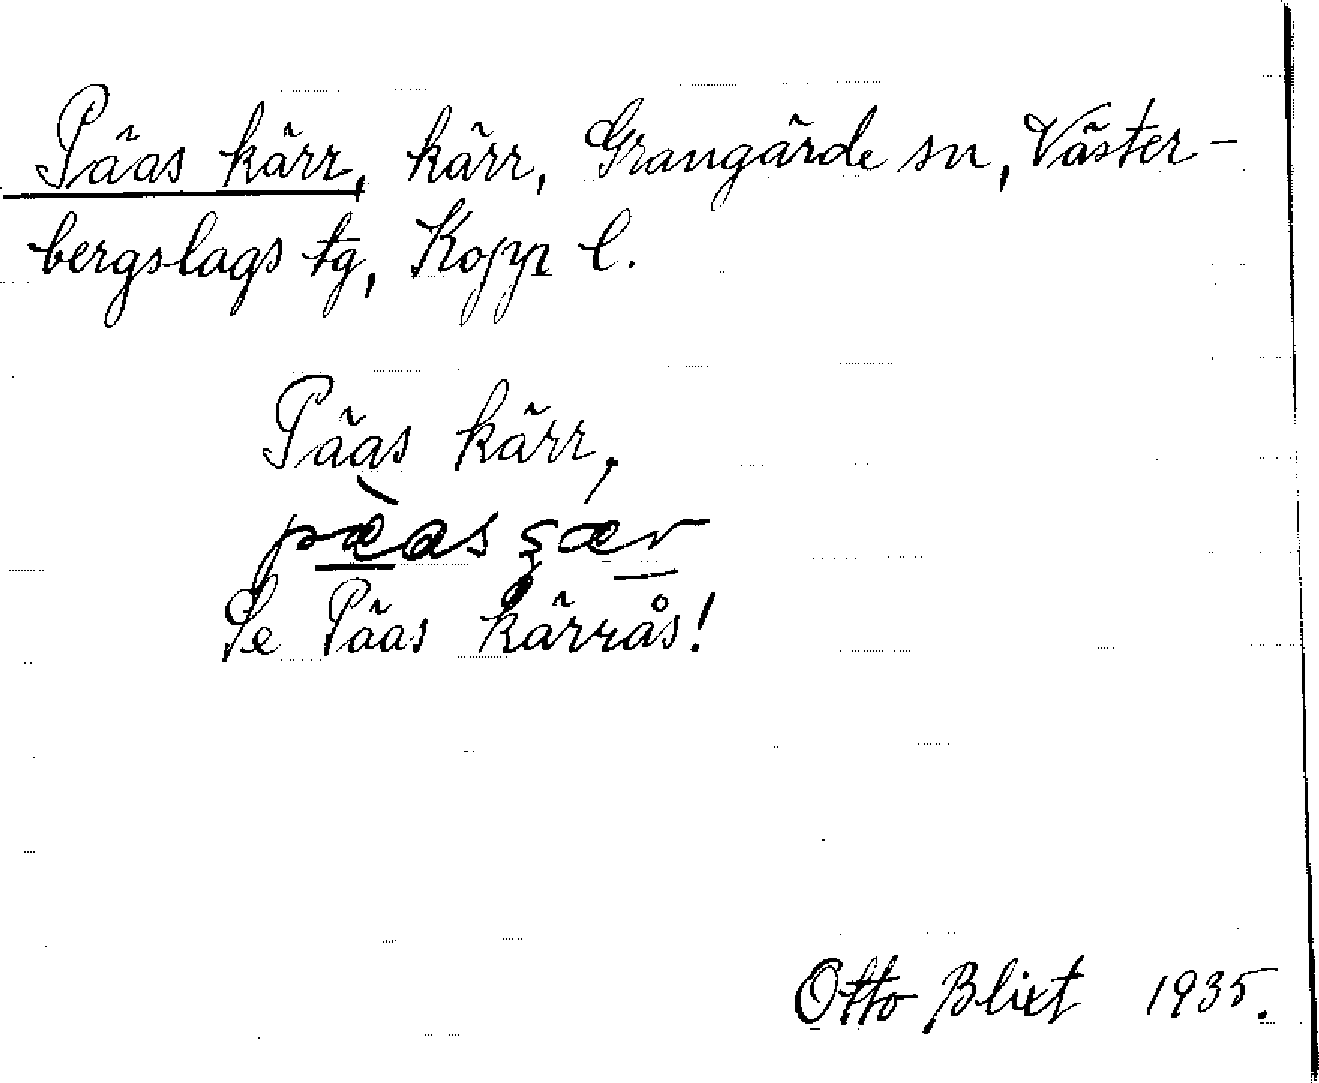 Päas kärr, kärr, Grangärde sn, Väster-
bergslags tg, Kopp l.
Pääs kärr,
pæ̀as çær
Se Pääs kärrås!
Otto Blixt 1935.